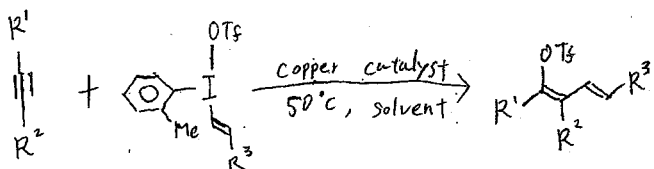 R¹
R²
+
OTf
I
Me
R³
copper catalyst
50°C, solvent
OTf
R¹
R²
R³